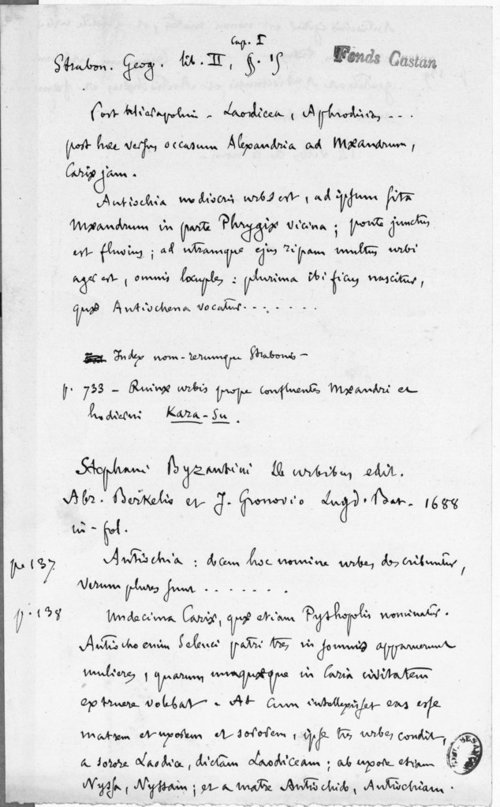 Cap. I
Strabon. Geog. lib. II, §. 15
Fonds Castan
Post Hierapolim - Laodicea, Aphrodisias ...
post hæc versus occasum Alexandria ad Mæandrum,
Carix jam.
Antiochia mediocris urbs est, ad ipsum sita
Mæandrum in parte Phrygiæ vicina ; ponte junctus
est fluvius ; ad utramque ejus ripam multus urbi
ager est, omnis locuples : plurima ibi ficus nascitur,
quæ Antiochena vocatur .......
Index nom. rerumque Strabonis -
p. 733 - Ruinæ urbis prope confluentes Mæandri et
hodierni Kara-Su.
Stephani Byzantini De urbibus edit.
Abr. Berkelio et J. Gronovio Lugd. Bat. 1688
in-fol.
p. 137. Antiochia : decem hoc nomine urbes describuntur,
verum plures sunt .......
p. 138 Undecima Cariæ, quæ etiam Pythopolis nominatur.
Antiocho enim Seleuci patri tres in somnis apparuerunt
mulieres, quarum unaquæque in Caria civitatem
extruere volebat - At cum intellexisset eas esse
matrem et uxorem et sororem, ipse tres urbes condit,
a sorore Laodice, dictam Laodiceam ; ab uxore etiam
Nyssa, Nyssam ; et a matre Antiochide, Antiochiam.